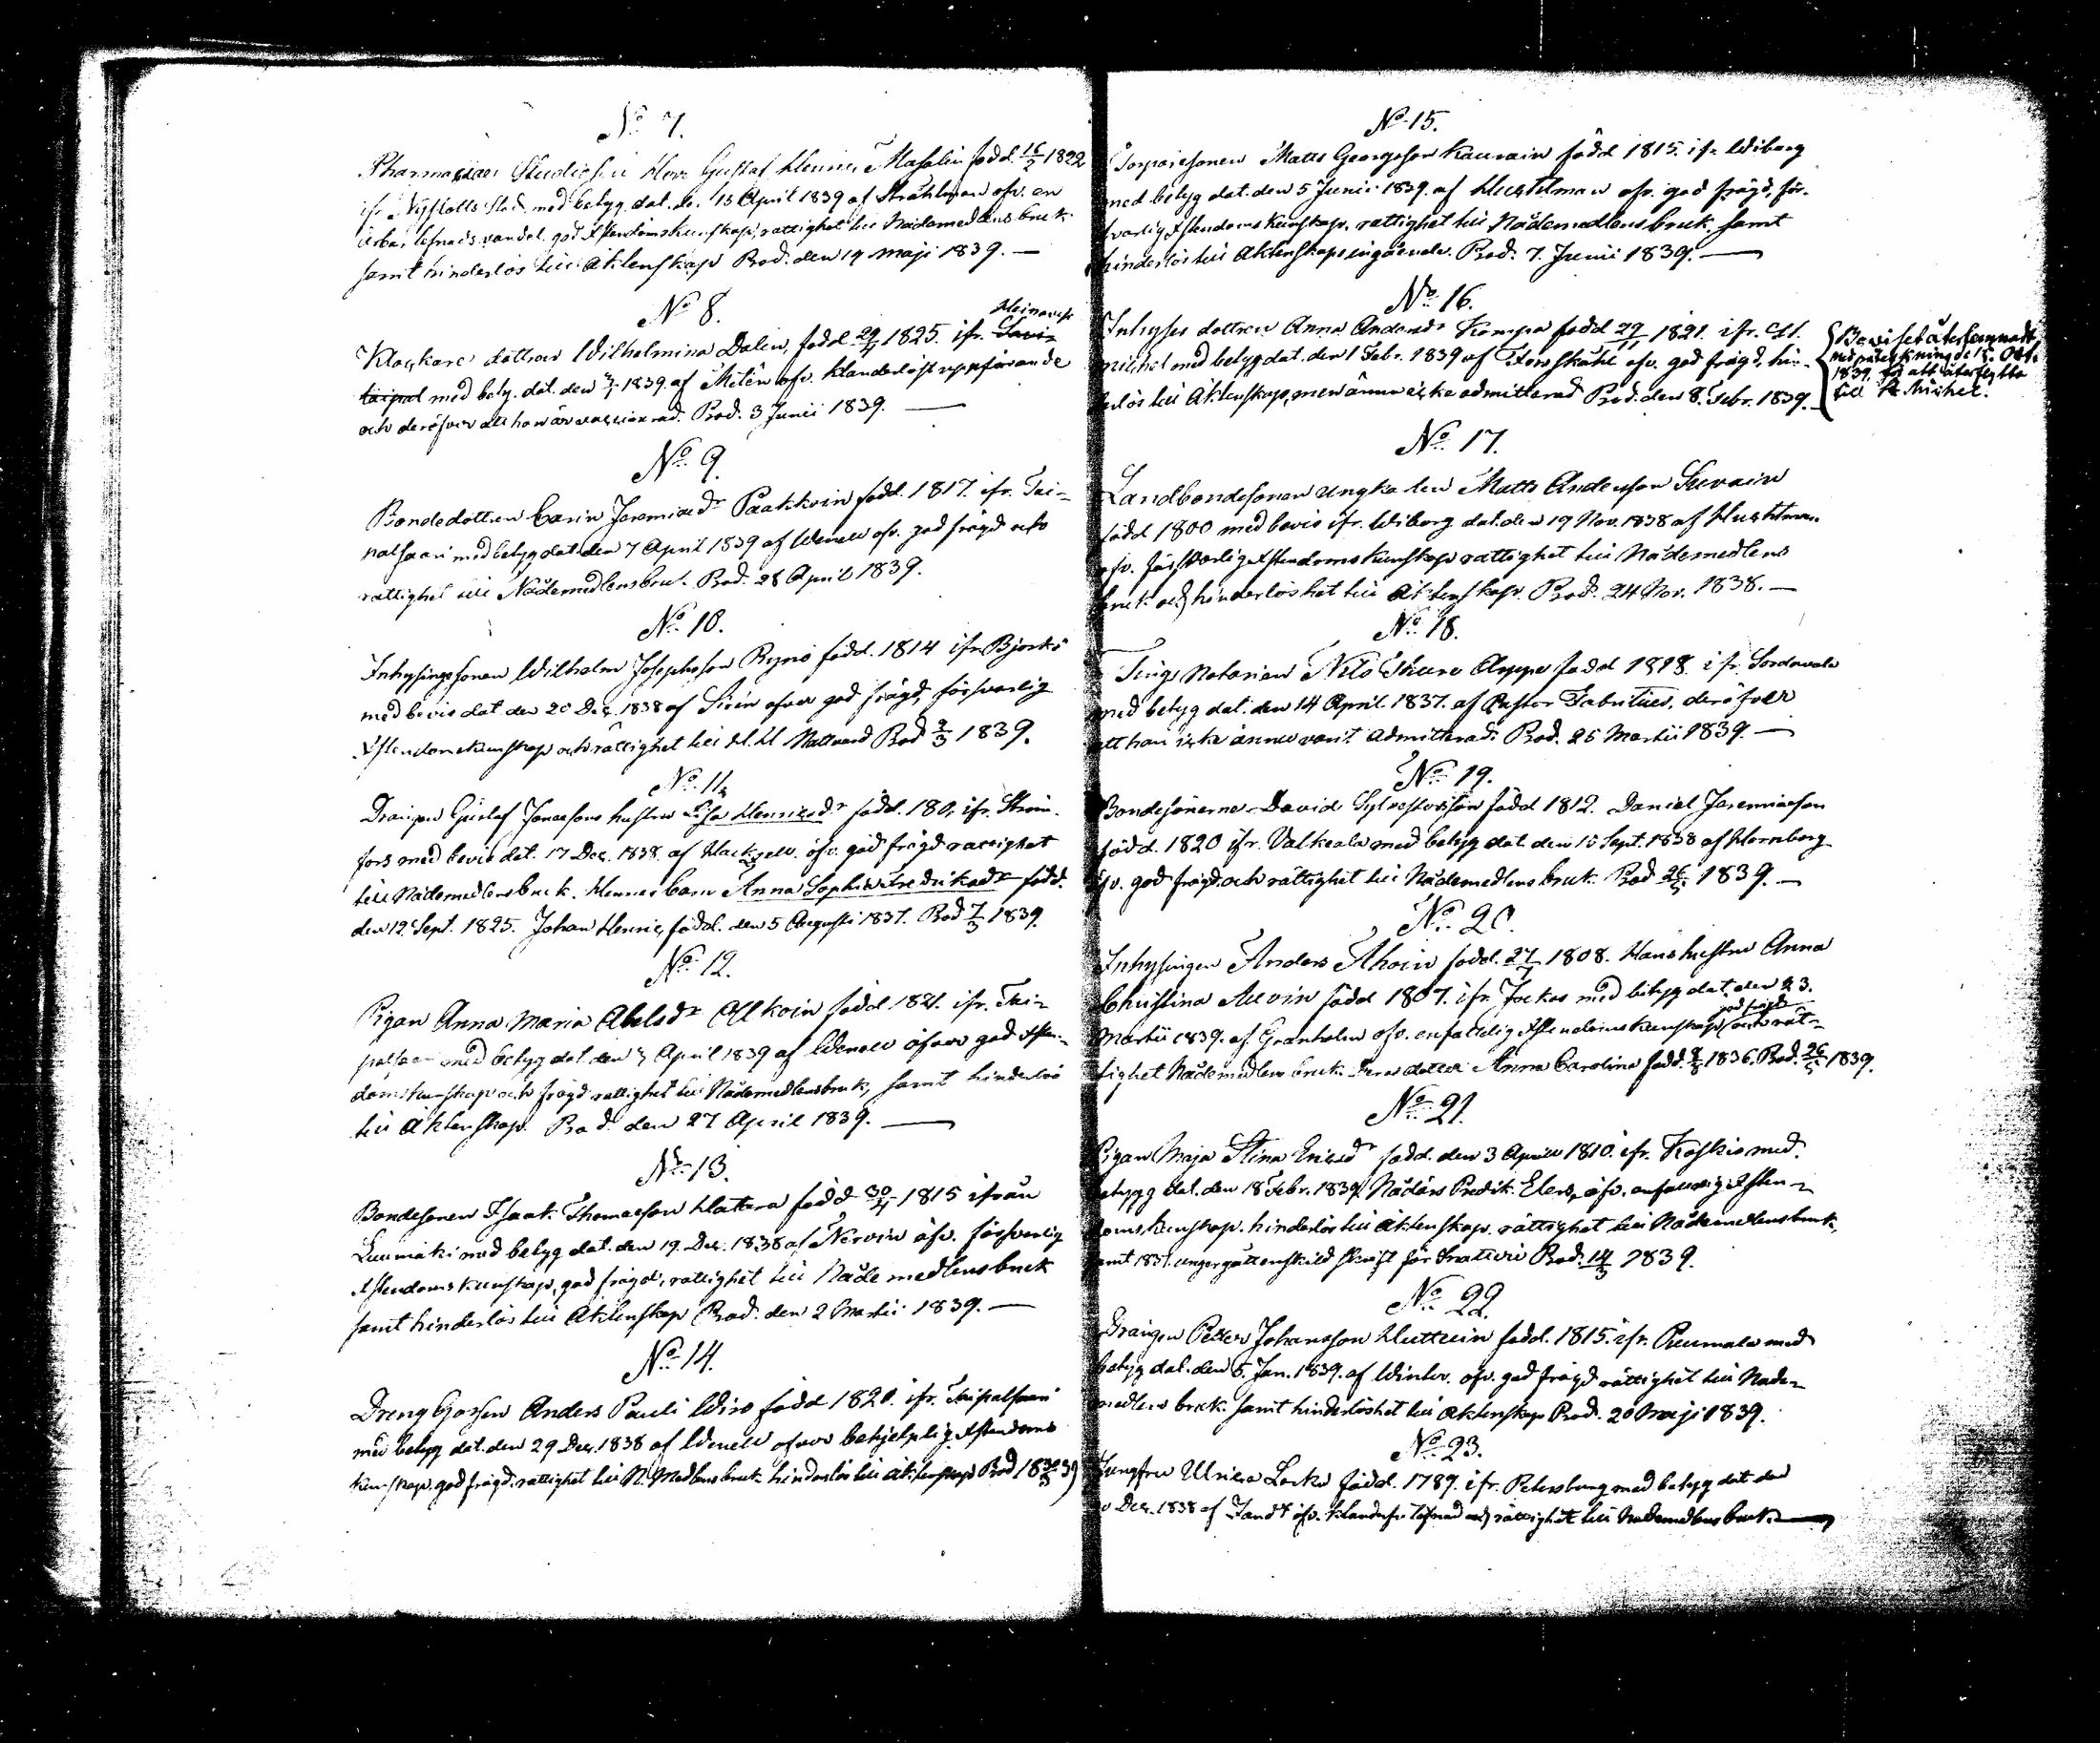 No 7.
Pharmaciae Studiosus Herr Gustaf Henric Masalin född 16/2 1822
ifr. Nyslotts Stad med betyg dat. d. 13 April 1839 af Stråhlman öfv. en
ärbar lefnads vandel, god Xstendoms kunskap, rättighet till Nådemedlens bruk
samt hinderlös till Äktenskap Prod. den 14 Maji 1839. —
No 8.
Heinävesi
Klockare dottren Wilhelmina Dalin, född 29/4 1825. ifr. Savi-
taipal med betyg dat. den 3/1 1839 af Melén öfv. klanderlöst uppförande
och deröfver att hon är vaccinerad. Prod. 3 Junii 1839. —
No 9.
Bondedottren Carin Jeremiaedr Paakkoin född 1817. ifr. Tai-
palsaari med betyg dat. den 7 April 1839 af Wenell öfv. god frägd och
rättighet till Nådemedlens bruk. Prod. 28 April 1839.
No 10.
Inhysings sonen Wilhelm Josephsson Rynö född 1814 ifr. Björkö
med bevis dat den 20 Dec. 1838 af Sirén öfver god frägd, försvarlig
Xstendomskunskap och rättighet till H. H Nattvard Prod 2/3 1839.
No 11
Drängen Gustaf Jonassons hustru Lisa Henricsdr född 180, ifr. Ström-
fors med bevis dat. 17 Dec. 1838 af Hackzell öfv. god frägd rättighet
till Nådemedlens bruk. Hennes barn Anna Sophia Fredriksdr född
den 12 Sept. 1825. Johan Henric, född den 5 Augusti 1837. Prod 7/3 1839.
No 12.
Pigan Anna Maria Abelsdr Ahlkoin född 1821. ifr. Tai-
palsaari med betyg dat. den 3 April 1839 af Wenell öfver god Xsten-
domskunskap och frägd rättighet till Nådemedlens bruk, samt hinderlös
till Äktenskap. Prod. den 27 April 1839. —
No 13.
Bondesonen Isaak Thomasson Hattara född 30/4 1815 ifrån
Luumäki med betyg dat. den 19. Dec. 1838 af Nervin öfv. försvarlig
Xstendoms kunskap, god frägd, rättighet till Nådemedlens bruk
samt hinderlös till Äktenskap Prod. den 2 Martii 1839. —
No 14.
Dreng Gossen Anders Pauli Wiro född 1820. ifr. Taipalsaari
med betyg dat. den 29 Dec. 1838 af Wenell öfver behjelplig Xstendoms
kunskap, god frägd, rättighet till N. Medlens bruk hinderlös till äktenskap Prod 18 30/3 39
No 15.
Torparesonen Matts Georgsson Kauvain född 1815. ifr. Wiborg
med betyg dat. den 5 Junii 1839. af Hustelman öfv. god frägd, för-
svarlig Xstendoms kunskap, rättighet till Nådemedlens bruk samt
hinderlös till Äktenskaps ingående. Prod. 7. Junii 1839. —
No 16.
Inhyses dottren Anna Andersdr Kämpe född 29/11 1821. ifr. St.
Michel med betyg dat. den 1 Febr. 1839 af Forsskåhl öfv. god frägd, hin-
derlös till Äktenskap, men ännu icke admitterad Prod. den 8. Febr. 1839.
Beviset återlemnadt
med påteckning d. 15. Oct.
1839. för att återflytta
till St. Michel.
No 17.
Landbondesonen ungkarlen Matts Andersson Suvain
född 1800 med bevis ifr. Wiborg dat. den 19 Nov. 1838 af Hustelman
öfv. försvarlig Xstendoms kunskap rättighet till Nådemedlens
bruk och hinderlöshet till Äktenskap. Prod. 24 Nov. 1838. —
No 18.
Tings Notarien Nils Thure Arppe född 1818. ifr. Sordavala
med betyg dat. den 14 April 1837. af Pastor Fabritius, deröfver
att han icke ännu varit admitterad. Prod. 25 Martii 1839. —
No 19.
Bondesönerne David Sylvestersson född 1812. Daniel Jeremiaeson
född 1820 ifr. Valkeala med betyg dat. den 15 Sept. 1838 af Hornborg
öfv. god frägd, och rättighet till Nådemedlens bruk. Prod 26/5 1839. —
No 20.
Inhysingen Anders Ahoin född 27/7 1808. Hans hustru Anna
Christina Auvin född 1807. ifr. Jockas med betyg dat. den 23.
god frägd
Martii 1839. af Granholm öfv. enfaldig Xstendoms kunskap, och rät-
tighet Nådemedlens bruk. Deras dotter Anna Carolina född 1836. Prod. 26/5 1839.
No 21.
Pigan Maja Stina Ericsdr född den 3 April 1810. ifr. Koskis med
betyg dat. den 18 Febr. 1839. Nådårs Predik. Elers, öfv. enfaldig Xsten-
doms kunskap, hinderlös till Äktenskap, rättighet till Nådemedlens bruk
samt 1831 undergått enskild skrift för Prod. 14/3 1839.
No 22.
Drängen Petter Johansson Huttuin född 1815. ifr. Puumala med
betyg dat. den 5. Jan. 1839. af Winter. öfv. god frägd rättighet till Nåde-
medlens bruk. Samt hinderlöshet till Äktenskap Prod. 20 Maji 1839.
No 23.
Jungfru Ulrica Lecko född 1789. ifr. Petersburg med betyg dat. den
Dec. 1838 af Fandt öfv. klanderfri lefnad och rättighet till Nådemedlens bruk. —